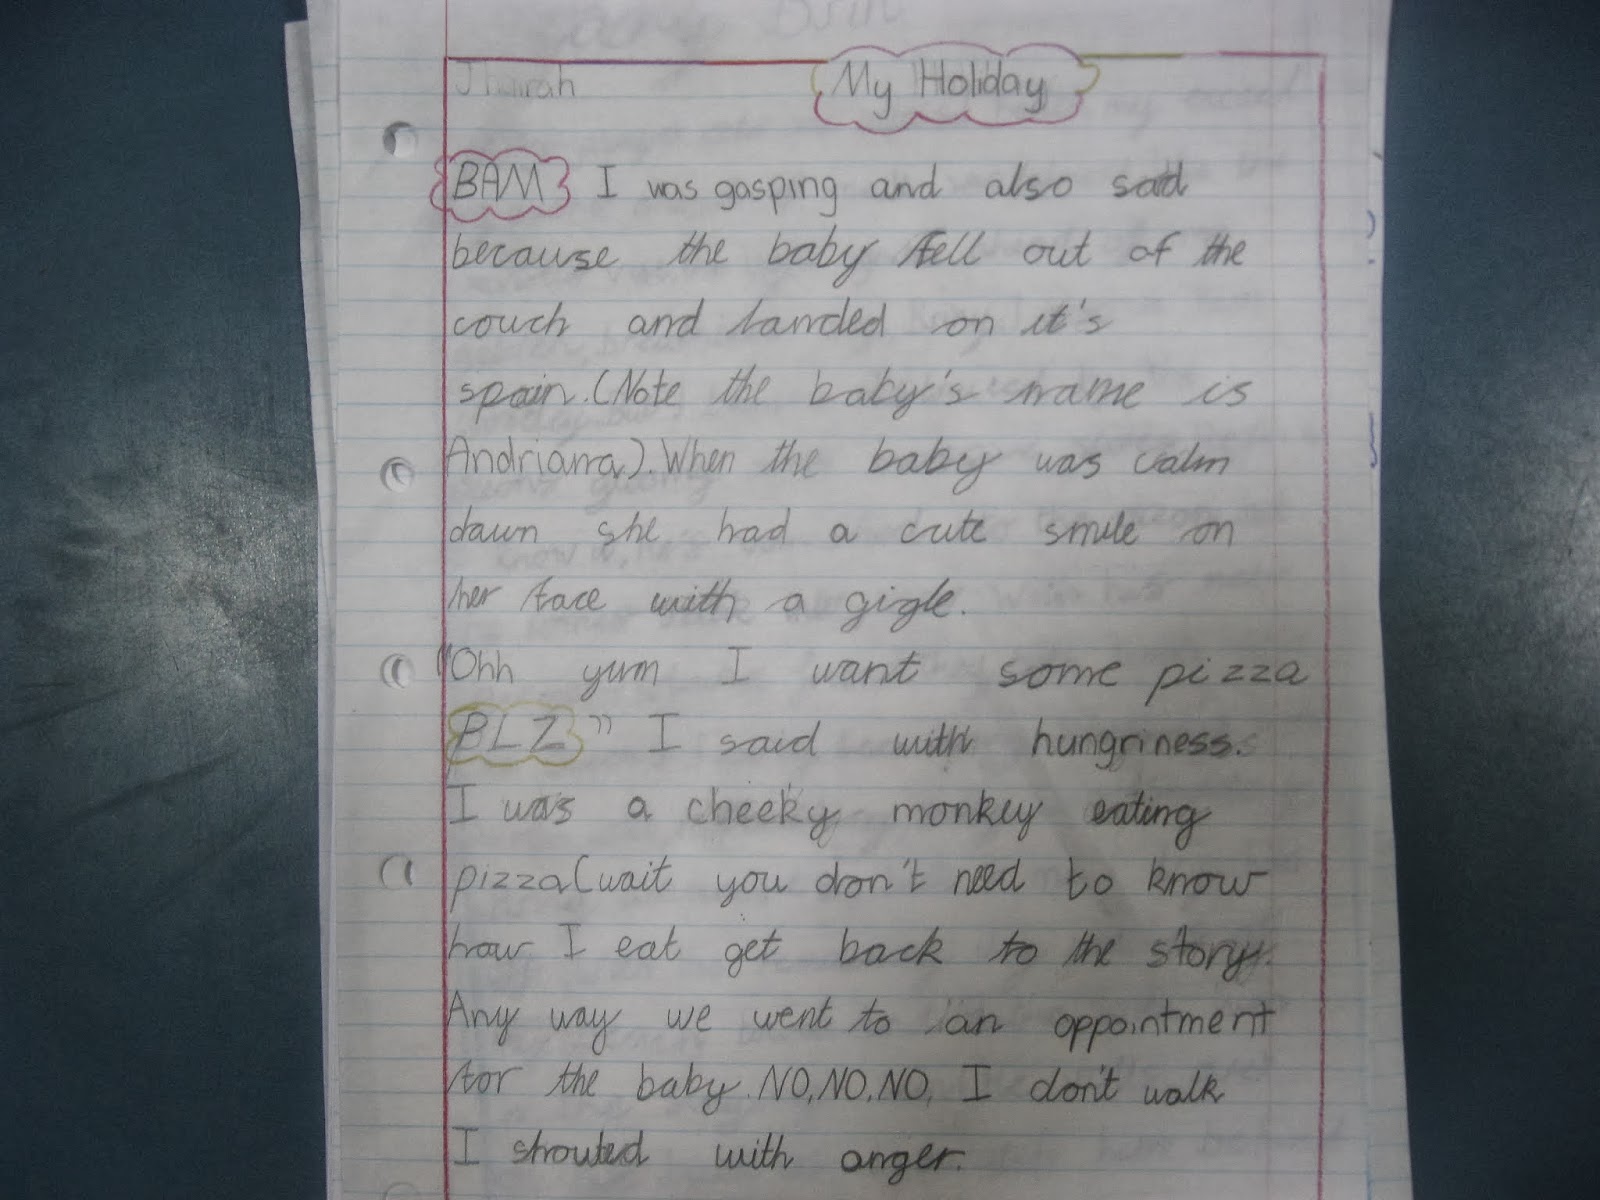 Jhairah My Holiday
BAM I was gasping and also sad
because the baby fell out of the
couch and landed on it's
spain.(Note the baby's name is
Andriana).When the baby was calm
dawn she had a cute smile on
her face with a gigle.
"Ohh yum I want some pizza
BLZ" I said with hungriness.
I was a cheeky monkey eating
pizza(wait you don't need to know
how I eat get back to the story.
Any way we went to an appointment
for the baby.NO,NO,NO, I don't walk
I shouted with anger.